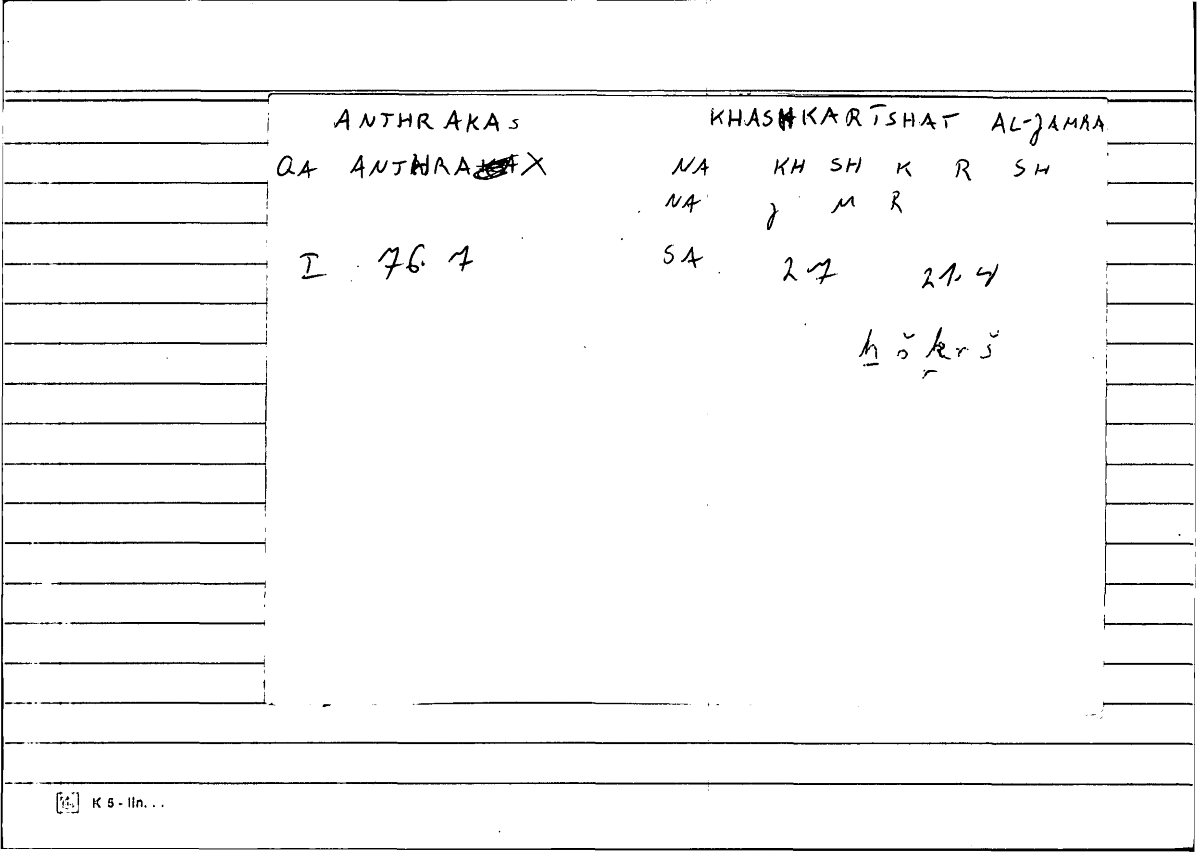 ANTHRAKAs KHASHKARISHAT AL-JAMRA
QA ANTHRAX NA KH SH K R SH
NA J M R
I 76.7 SA 2.7 21.4
h š k r š
r
K 5 - lin. . .